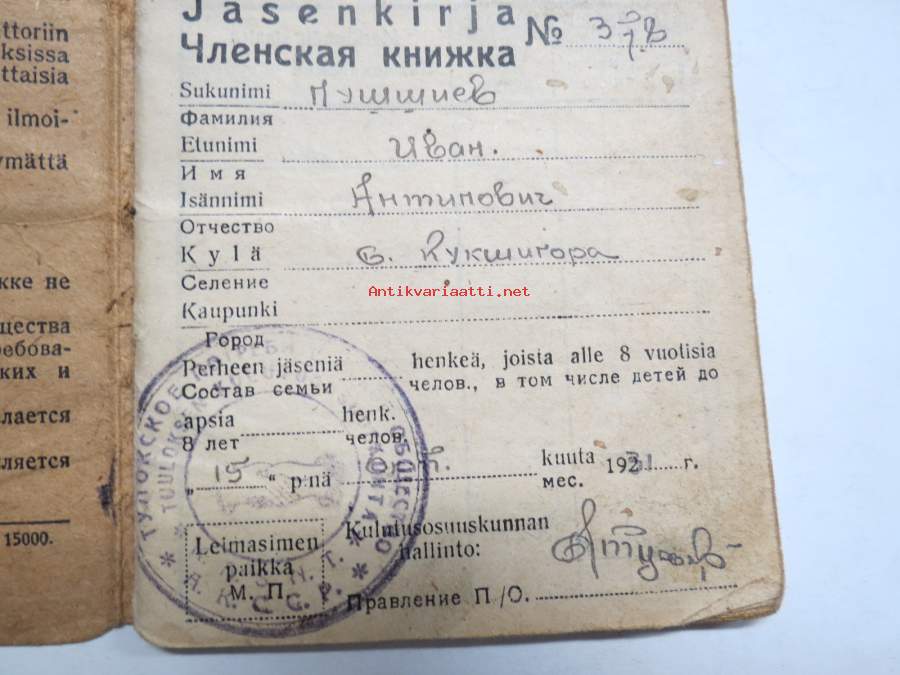 ttoriin
ksissa
ttaisia
ilmoi-
ymättä
kke не
щества
ребова-
ких и
лается
ляется
15000.
Jäsenkirja
Членская книжка №
Sukunimi
Фамилия
Etunimi Иван.
Имя
Isännimi Антипович
Отчество
Kylä с. Кукшигора
Селение
Antikvariaatti.net
Kaupunki
Город
Perheen jäseniä henkeä, joista alle 8 vuotisia
Состав семьи челов., в том числе детей до
apsia henk.
8 лет челов.
„15“ p:nä kuuta 1931 г.
мес.
Leimasimen
paikka
М. П.
Kulutusosuuskunnan
hallinto:
Правление П/О.
ТУЛОКСКОЕ ОБЩЕСТВО
TUULOKSEN
А.К.С.С.Р.